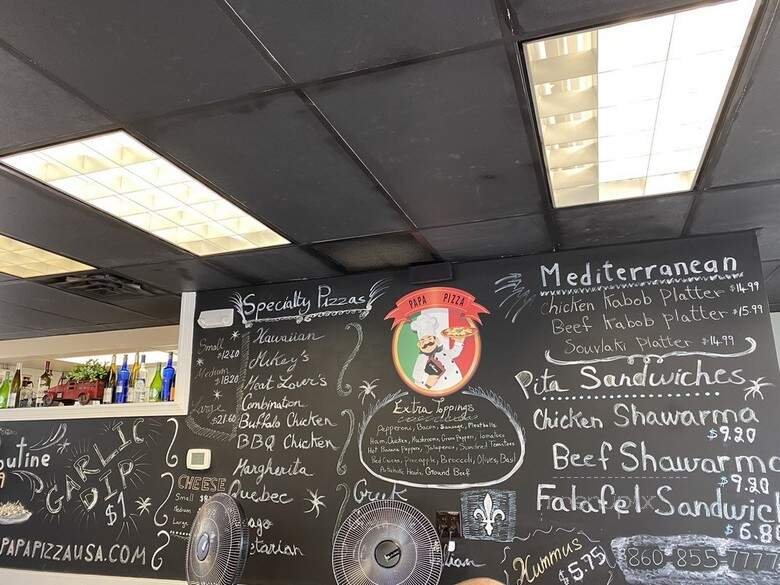 Specialty Pizzas
Small
$12.60
Medium
$18.20
Large
$21.60
Hawaiian
Mikey's
Meat Lover's
Combination
Buffalo Chicken
BBQ Chicken
Margherita
Quebec
Greek
PAPA PIZZA
Extra Toppings
Pepperoni, Bacon, Sausage, Meatballs
Ham, Chicken, Mushrooms, Green Peppers, Tomatoes
Hot Banana Peppers, Jalapenos, Sundried Tomatoes
Pineapple, Broccoli, Olives, Basil
Ground Beef
Mediterranean
Chicken Kabob Platter $14.99
Beef Kabob Platter $15.99
Souvlaki Platter $14.99
Pita Sandwiches
Chicken Shawarma
$9.20
Beef Shawarma
$9.20
Falafel Sandwich
$6.80
Hummus
$5.75
860-855-777
outine
GARLIC
DIP
$1
CHEESE
Small
Medium
Large
PAPAPIZZAUSA.COM